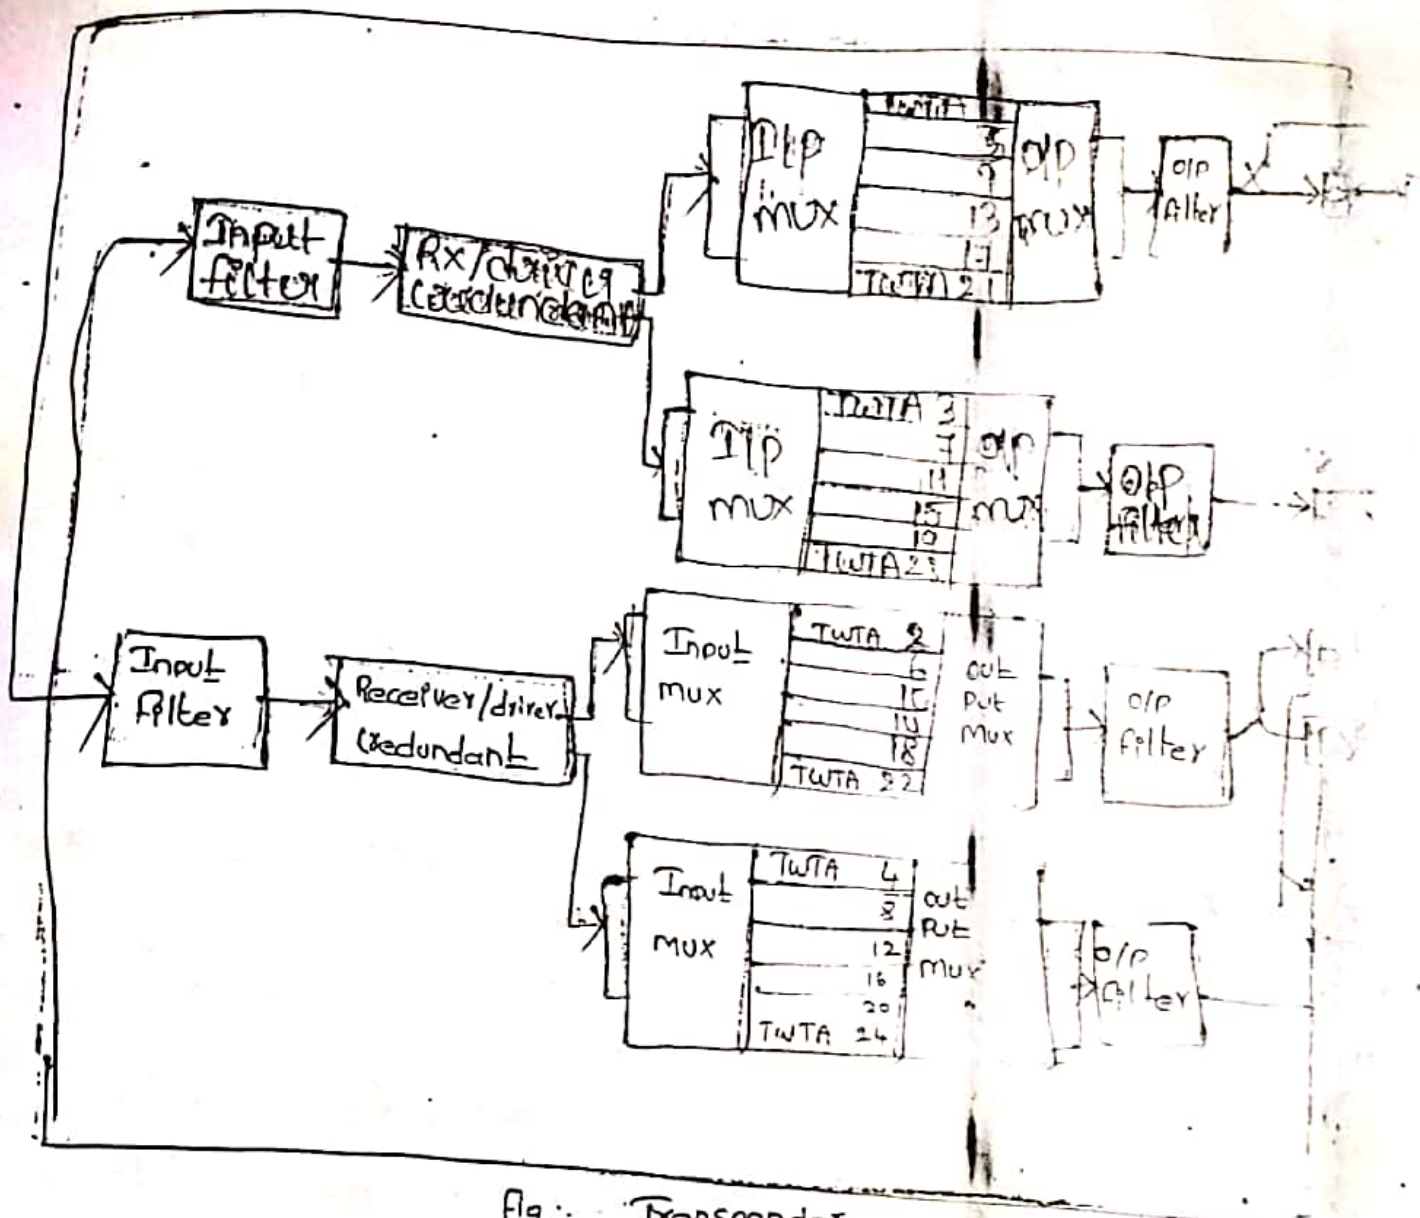 Input
filter
Rx/driver
(redundant
I/p
mux
TWTA
5
9
13
17
TWTA 21
O/p
mux
O/P
filter
I/p
mux
TWTA 3
7
11
15
19
TWTA 23
O/p
mux
O/P
filter
Input
filter
Receiver/driver
(redundant
Input
mux
TWTA 2
6
18
TWTA 22
out
put
mux
O/P
filter
Input
mux
TWTA 4
8
12
16
20
TWTA 24
out
put
mux
O/P
filter
Fig:- Transponder